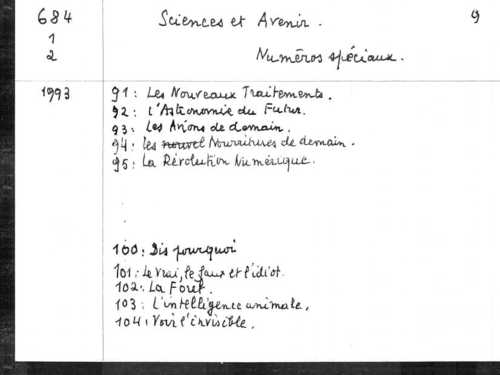 684 Sciences et Avenir. 9
1
2 Numéros spéciaux.
1993 91: Les Nouveaux Traitements.
92: L'Astronomie du Futur.
93: Les Avions de demain.
94: les nouvel Nourritures de demain.
95: La Révolution Numérique.
100: Dis pourquoi
101: Le vrai, le faux et l'idiot.
102: La Forêt.
103: L'intelligence animale,
104: Voir l'invisible.